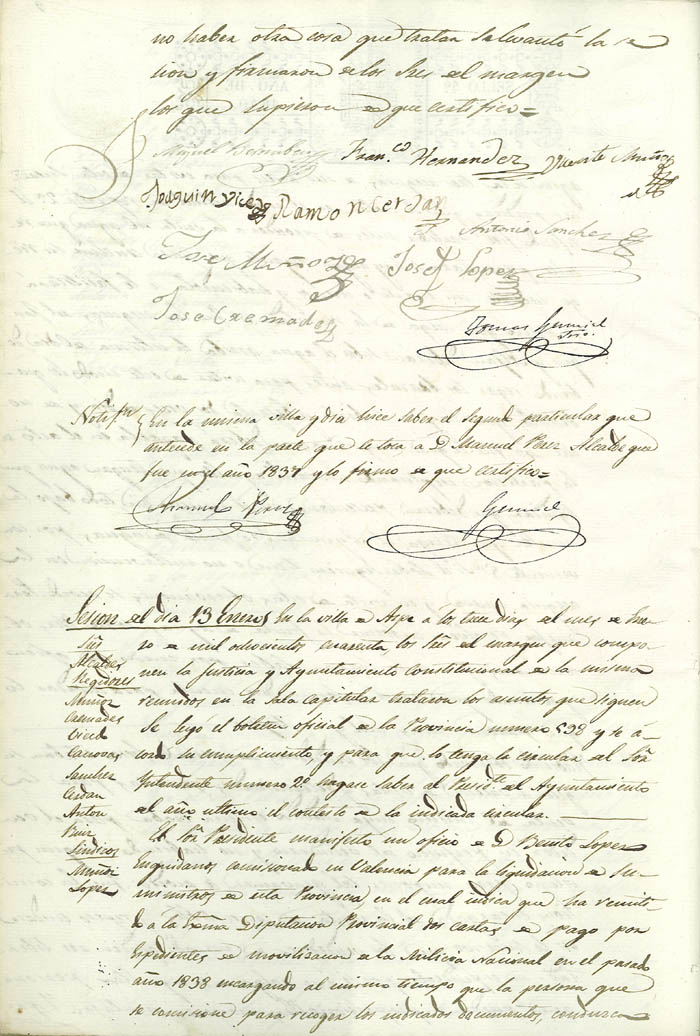 no haber otra cosa que tratar se levantó la se
sion y firmaron de los Sres del margen
los que supieron de que certifico=
Miguel
Fran.co Hernandez
Vicente Muñoz
Joaquin Vicedo
Ramon Cerdan
Antonio Sanchez
Jose Muñoz
Josef Lopez
Jose Cremades
Tomas
Srio.
Notif.on
En la misma villa y dia hice saber el segundo particular que
antecede en la parte que le toca a D. Manuel Perez Alcalde que
fue en el año 1837 y lo firmo de que certifico=
Manuel Perez
Sesion del dia 13 Enero
En la villa de Aspe á los trece dias del mes de Ene
ro de mil ochocientos cuarenta los Sres del margen que compo
nen la Justicia y Ayuntamiento Constitucional de la misma
reunidos en la sala capitular trataron los asuntos que siguen
Se leyó el boletin oficial de la Provincia numero 598 y se á
cordó su cumplimiento, y para que lo tenga la circular del Sor
Yntendente numero 2º hagase saber al Presid.te del Ayuntamiento
del año ultimo el contesto de la indicada circular.
El Sor Presidente manifestó un oficio de D. Benito Lopez
Enguidanos comisionado en Valencia para la liquidacion de Su
ministros de esta Provincia en el cual indica que ha remiti
do á la Exma Diputacion Provincial dos cartas de pago por
Espedientes de movilizacion de la Milicia Nacional en el pasado
año 1838 encargando al mismo tiempo que la persona que
se comisione para recoger los indicados documentos, conduzca
Sres
Alcaldes
Regidores
Muñoz
Cremades
Viced
Canovas
Sanchez
Cerdan
Anton
Ruiz
Sindicos
Muñoz
Lopez